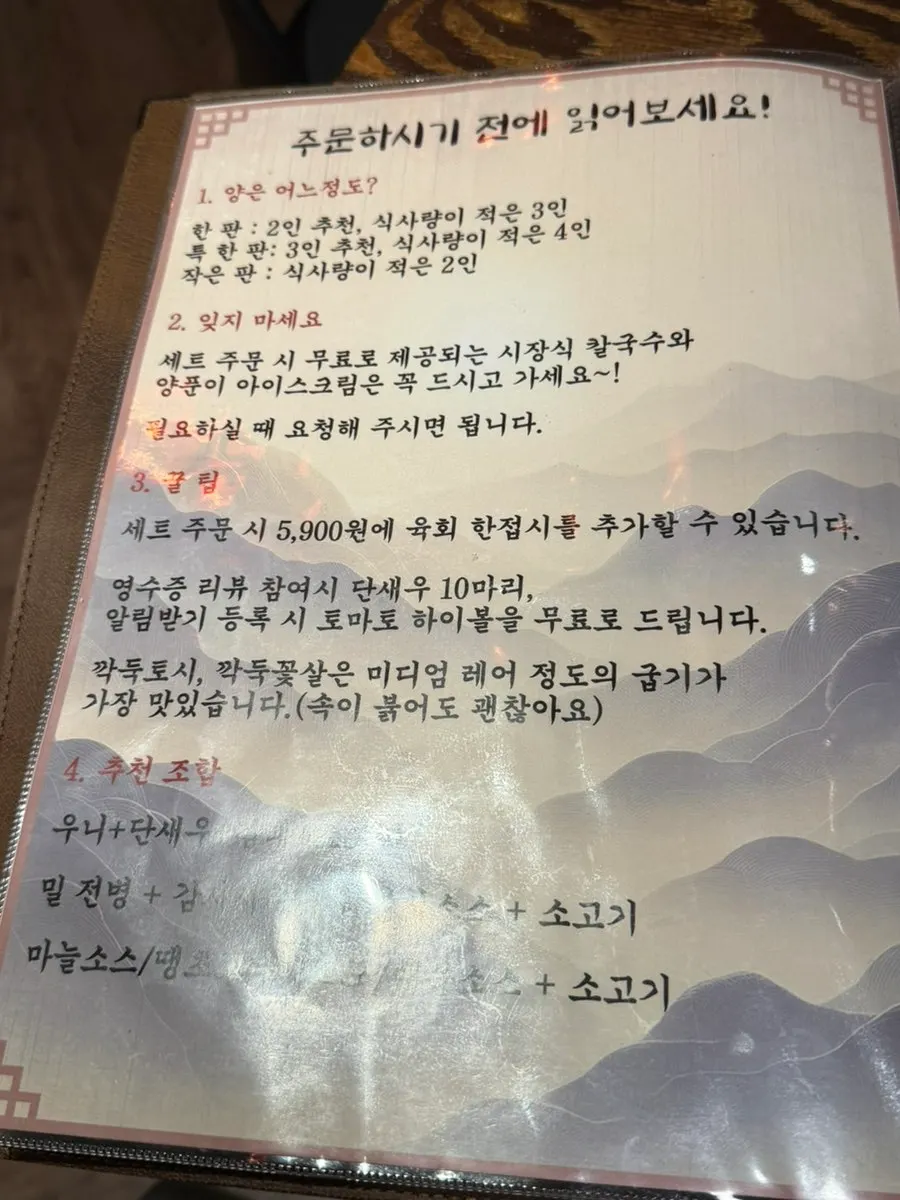 주문하시기 전에 읽어보세요!
1. 양은 어느정도?
한 판 : 2인 추천, 식사량이 적은 3인
특 한 판: 3인 추천, 식사량이 적은 4인
작은 판 : 식사량이 적은 2인
2. 잊지 마세요
세트 주문 시 무료로 제공되는 시장식 칼국수와
양푼이 아이스크림은 꼭 드시고 가세요~!
필요하실 때 요청해 주시면 됩니다.
3. 꿀 팁
세트 주문 시 5,900원에 육회 한접시를 추가할 수 있습니다.
영수증 리뷰 참여시 단새우 10마리,
알림받기 등록 시 토마토 하이볼을 무료로 드립니다.
깍둑토시, 깍둑꽃살은 미디엄 레어 정도의 굽기가
가장 맛있습니다.(속이 붉어도 괜찮아요)
4. 추천 조합
우니+단새우
밀 전병 + 소스 + 소고기
마늘소스/ 소스 + 소고기